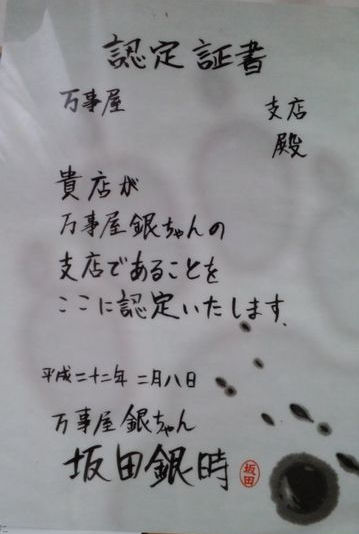 認定証書
万事屋 支店
殿
貴店が
万事屋銀ちゃんの
支店であることを
ここに認定いたします、
平成二十二年 二月八日
万事屋銀ちゃん
坂田銀時 坂田